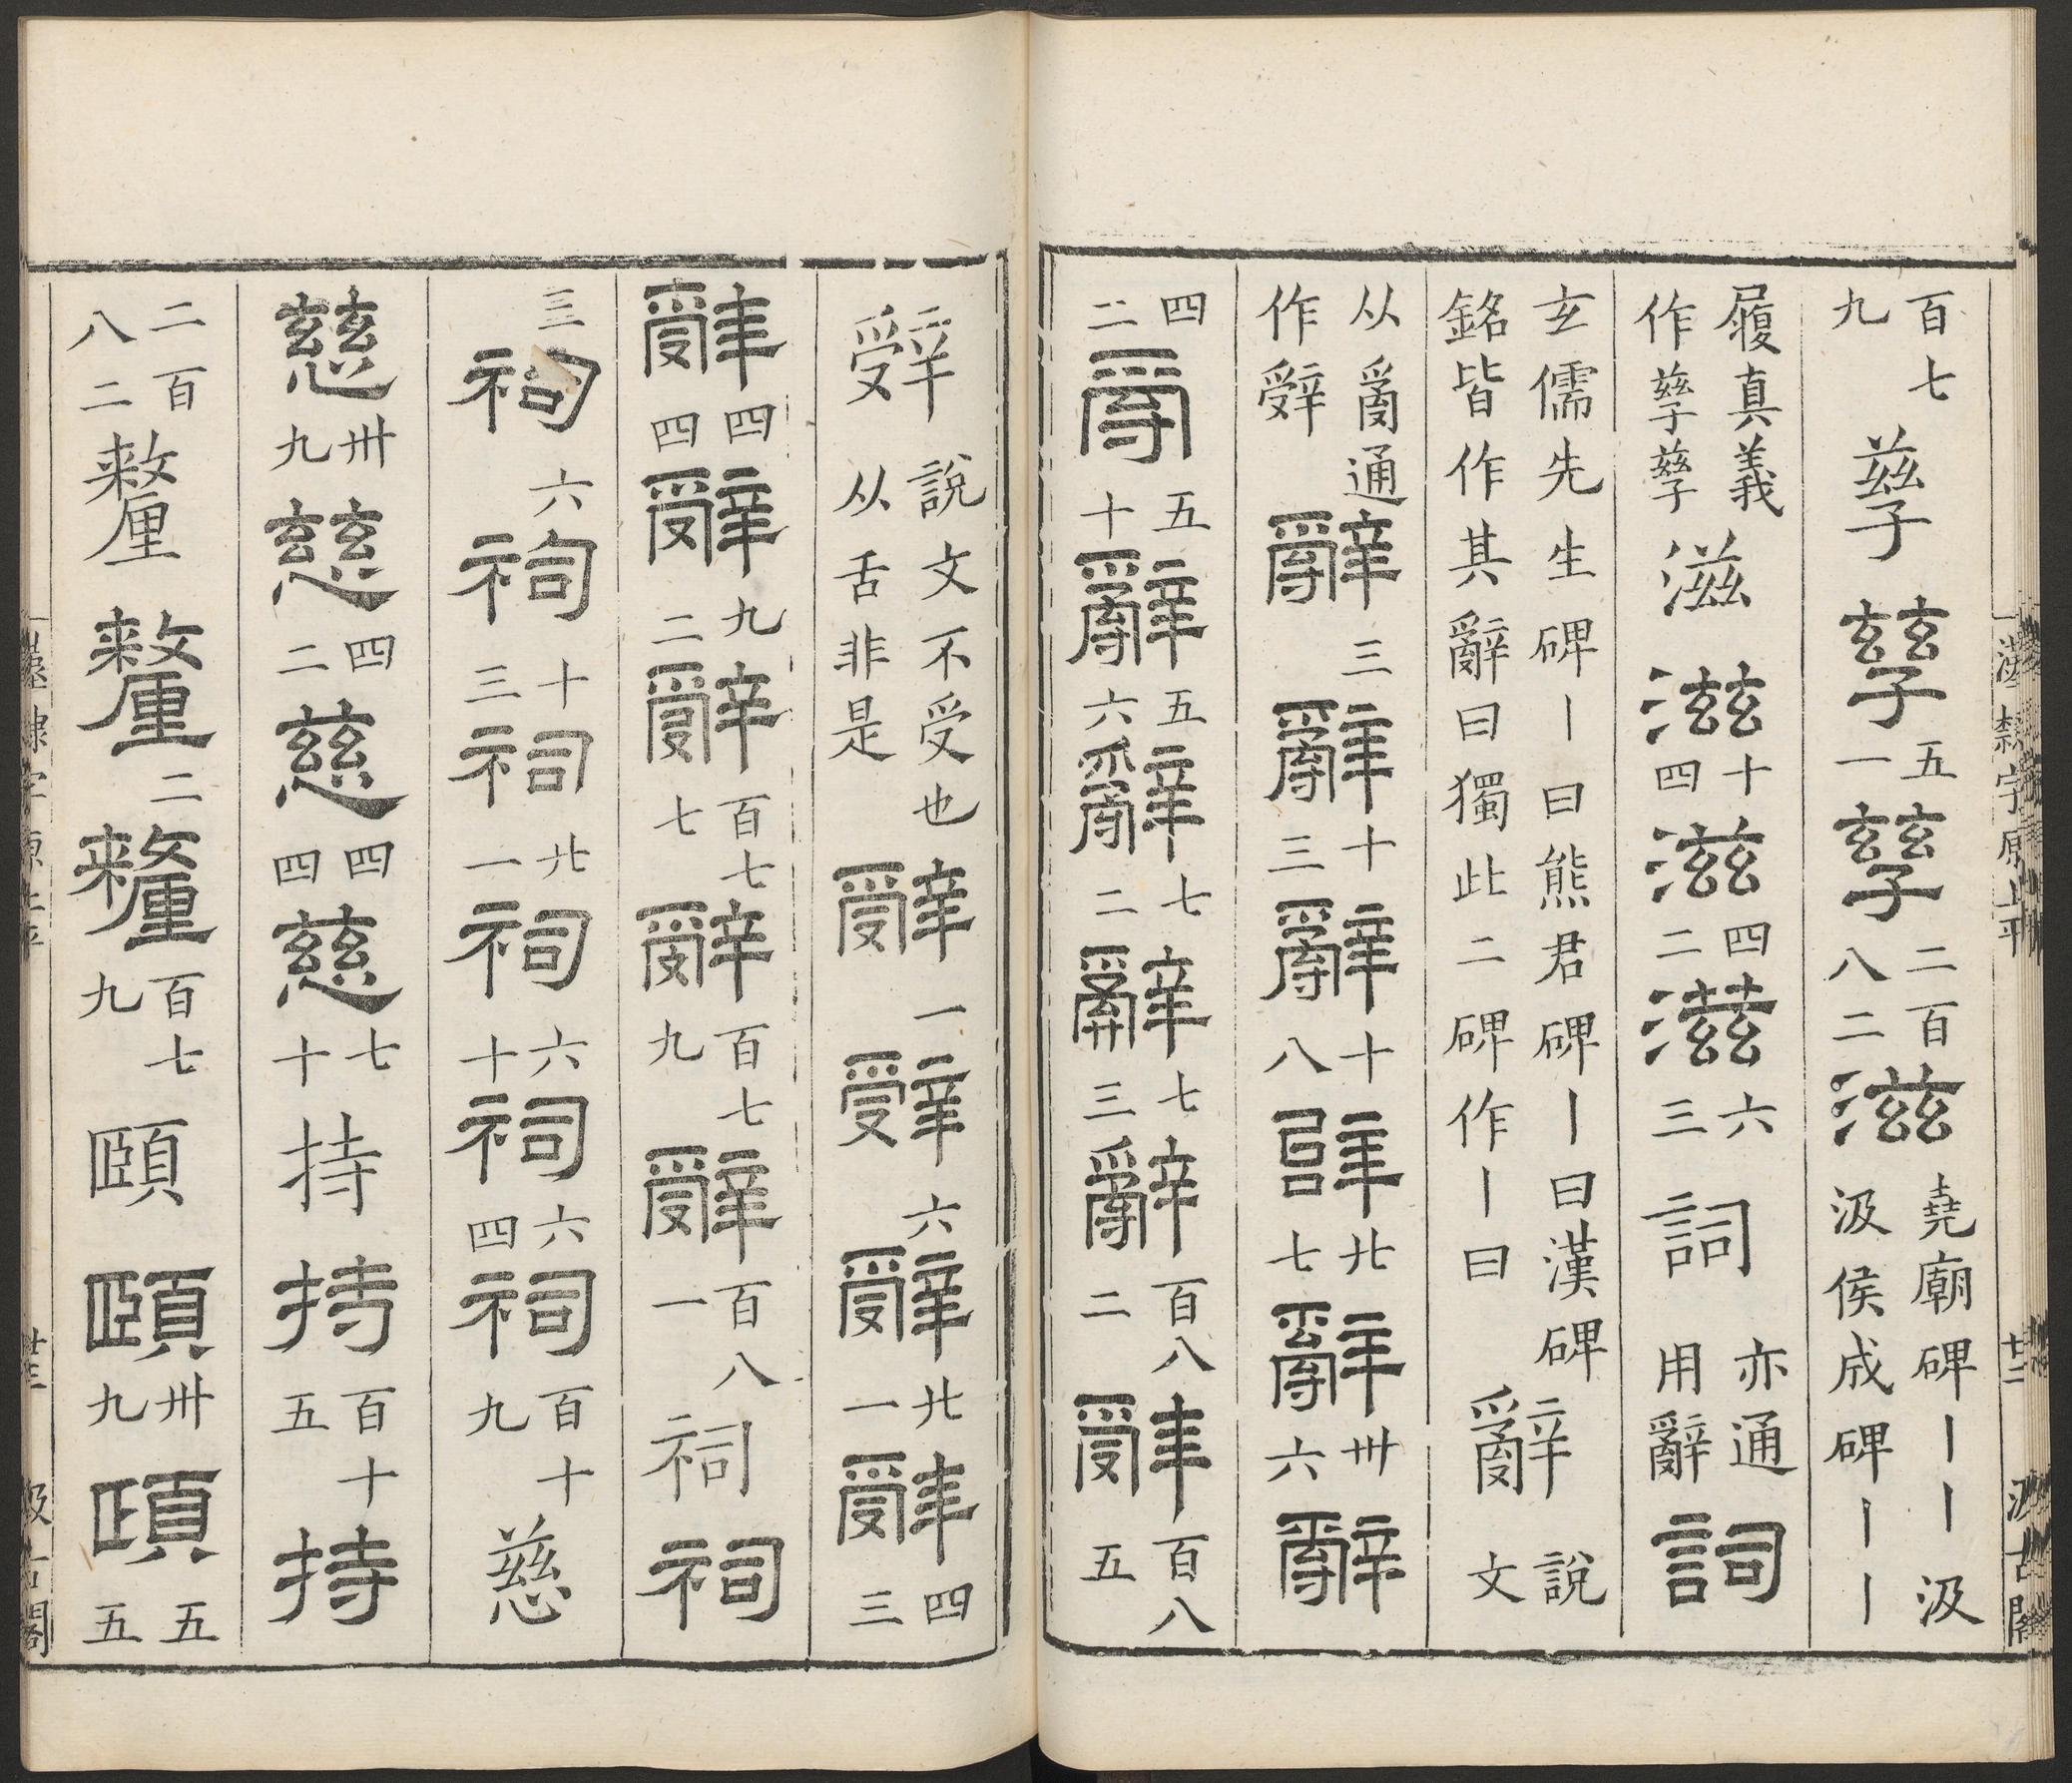 漢隸字原上平 廿二 汲古閣
百七九 孳 孳 五一 孳 二百八二 滋 堯廟碑丨丨汲汲侯成碑丨丨
履真義作孳孳 滋 滋 十四 滋 四二 滋 六三 詞 亦通用辭 詞
玄儒先生碑丨曰熊君碑丨曰漢碑銘皆作其辭曰獨此二碑作丨曰 辭 說文
从𤔔通作辤 辭 三 辭 十三 辭 十八 辭 廿七 辭 卅六 辭
四二 𤔔 五十 辭 五六 辭 七二 辭 七三 辭 百八二 辤 百八五
辤 說文不受也从舌非是 辤 一 辤 六 辤 廿一 辤 四三
辤 四四 辤 九二 辤 百七七 辤 百七九 辤 百八一 祠 祠
三 祠 六 祠 十三 祠 廿一 祠 六十 祠 六四 祠 百十九 慈
慈 卅九 慈 四二 慈 四四 慈 七十 持 持 百十五 持
二百八二 釐 釐 二 釐 百七九 頤 頤 卅九 頤 五五
漢隸字原上平 廿三 汲古閣